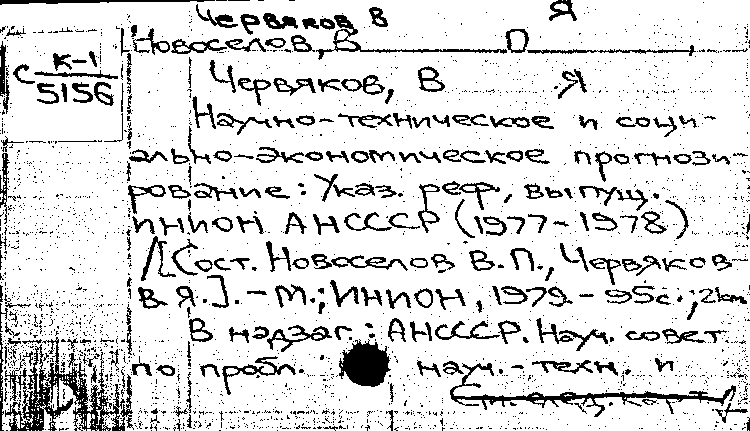 Червяков В Я
Новоселов, В П ,
С К-1
5156
Червяков, В Я
Научно-техническое и соци-
ально-экономическое прогнози-
рование: Указ. реф., выпущ.
ИНИОН АНСССР (1977-1978)
/[Сост. Новоселов В.П., Червяков
В.Я.]. - М.; ИНИОН, 1979. - 95с.;
В надзаг.: АНСССР. Науч. совет
по пробл. науч.-техн. и
См. след. карт.